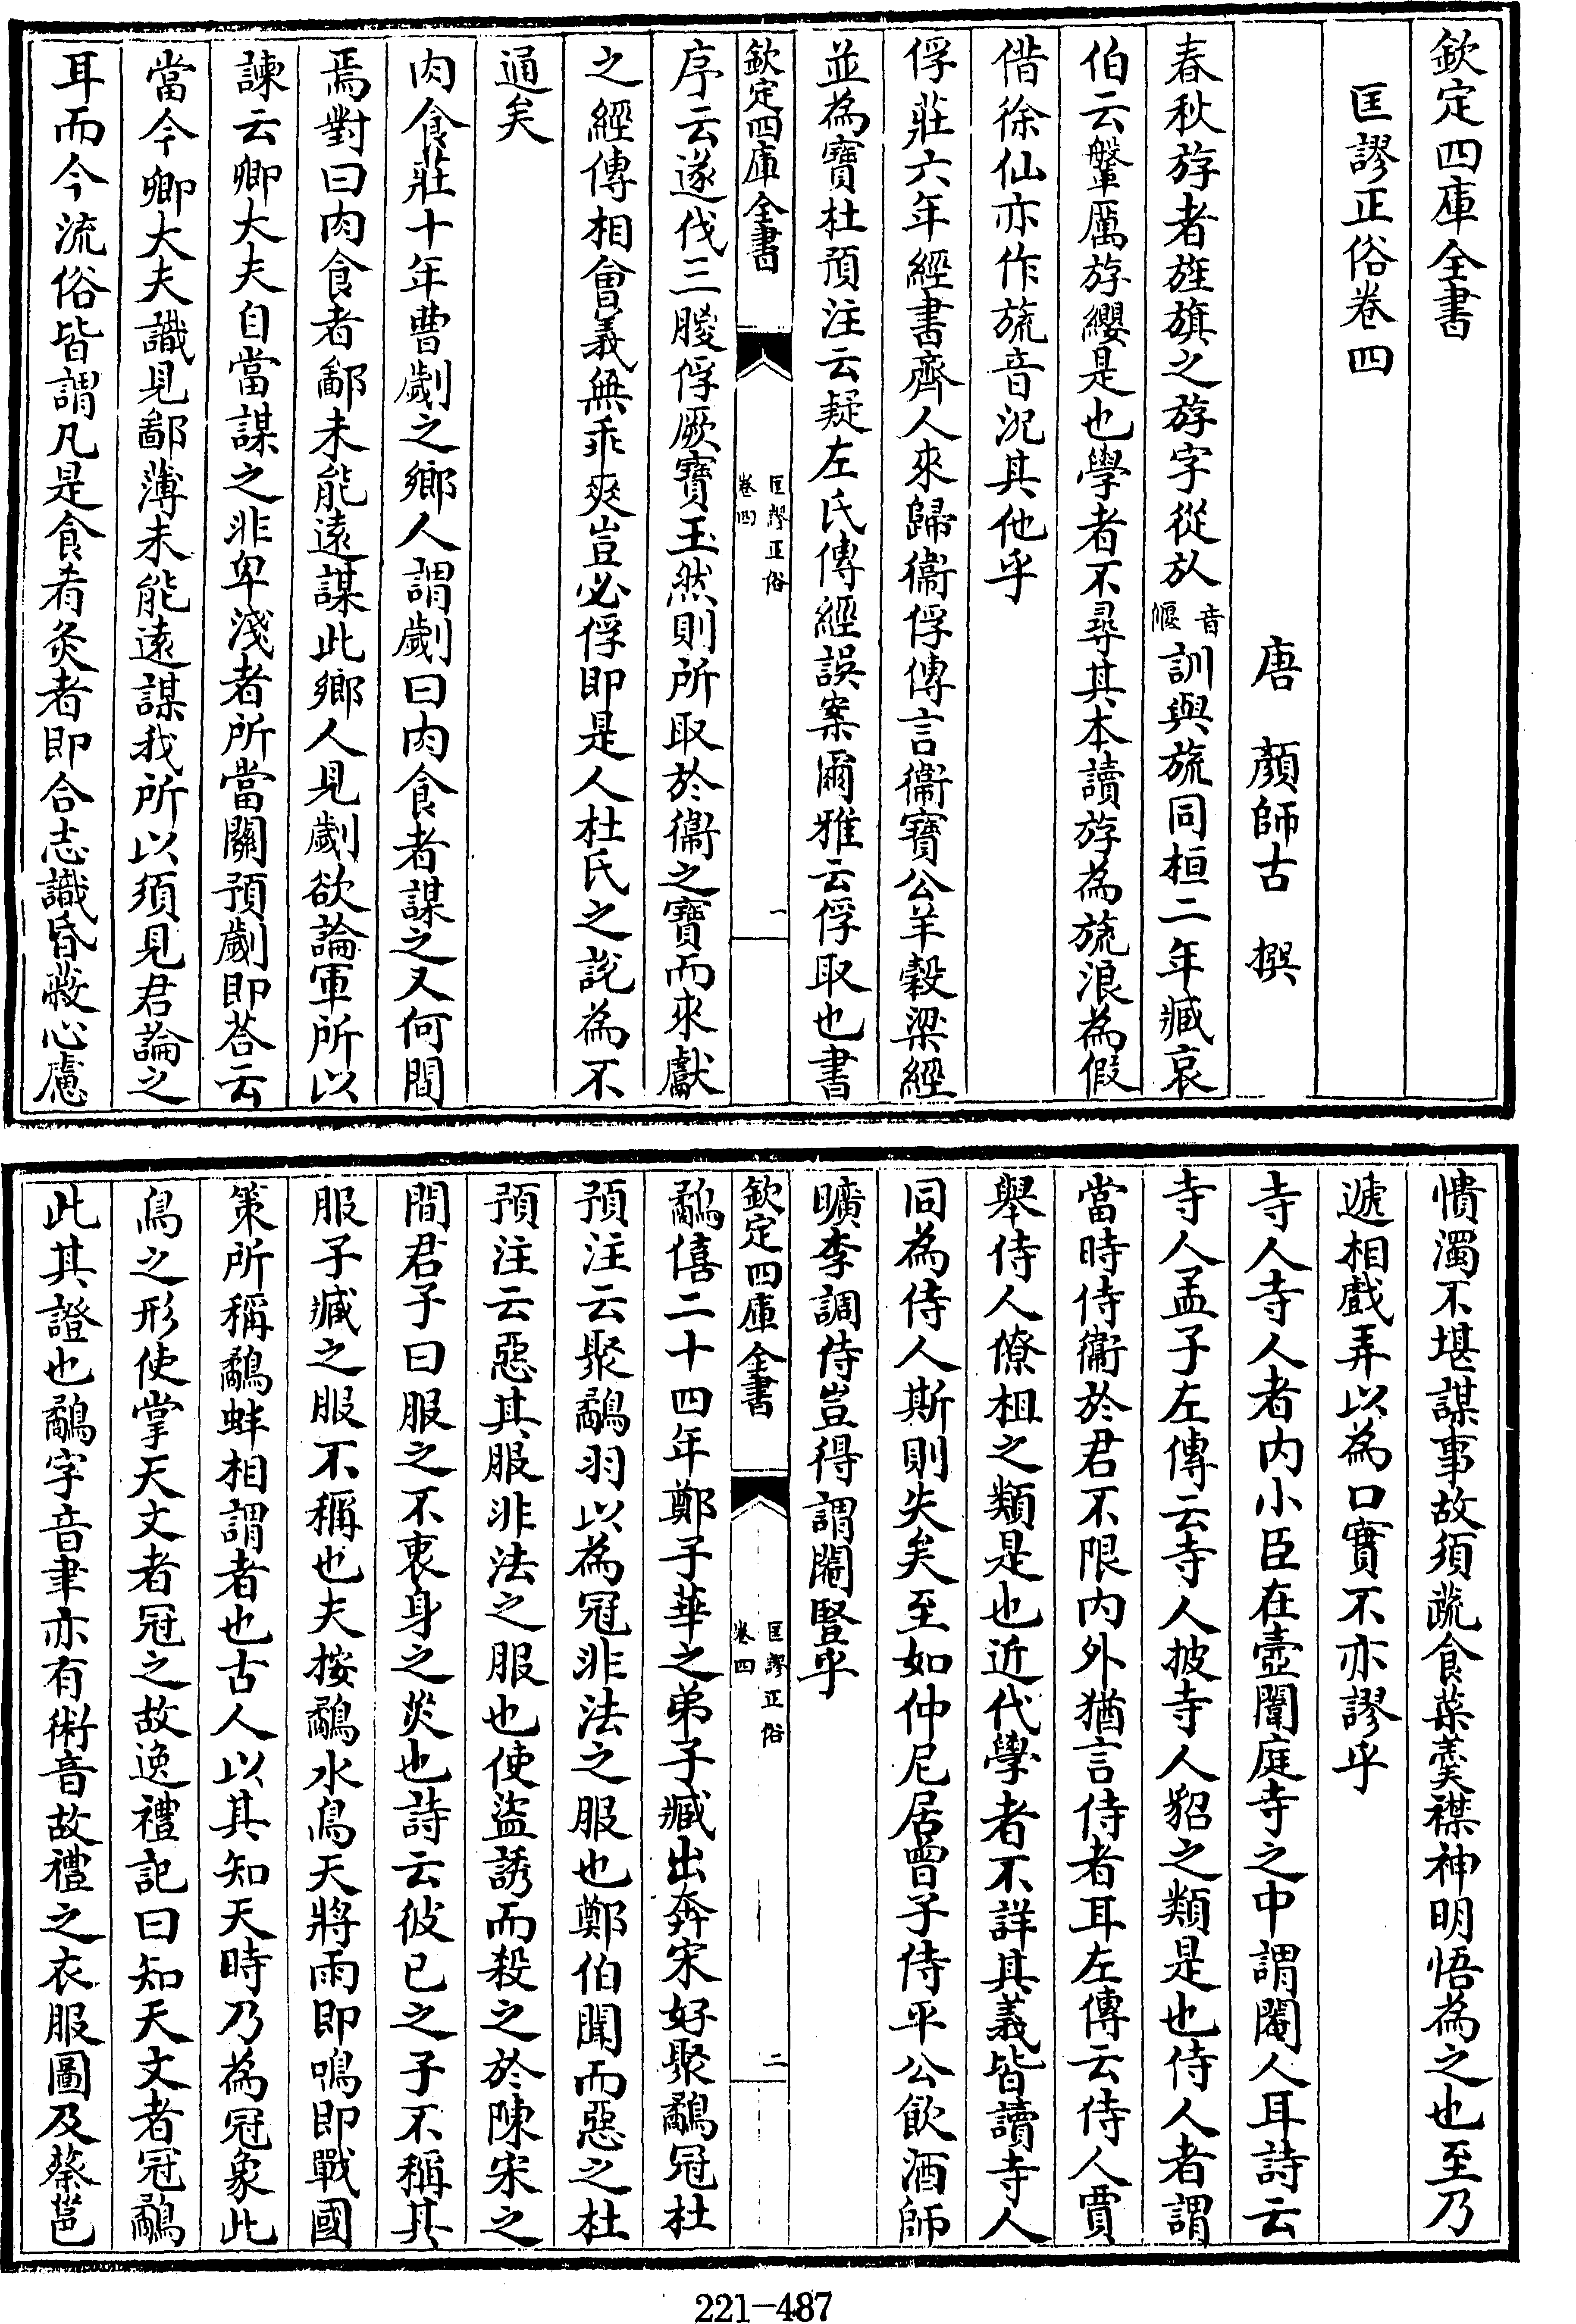 欽定四庫全書
匡謬正俗卷四
唐 顔師古 撰
春秋斿者旌旗之斿字從㫃音偃訓與旒同桓二年臧哀
伯云鞶厲斿纓是也學者不尋其本讀斿為旒浪為假
偕徐仙亦作旒音況其他乎
俘莊六年經書齊人來歸衞俘傳言衞寶公羊穀梁經
並為寶杜預注云疑左氏傳經誤案爾雅云俘取也書
欽定四庫全書
匡謬正俗
卷四
一
序云遂伐三朡俘厥寶玉然則所取於衞之寶而來獻
之經傳相會義無乖爽豈必俘即是人杜氏之說為不
通矣
肉食莊十年曹劌之鄉人謂劌曰肉食者謀之又何間
焉對曰肉食者鄙未能遠謀此鄉人見劌欲論軍所以
諫云卿大夫自當謀之非卑淺者所當關預劌即荅云
當今卿大夫識見鄙薄未能遠謀我所以須見君論之
耳而今流俗皆謂凡是食肴炙者即合志識昏蔽心慮
憒濁不堪謀事故須蔬食菜羹襟神明悟為之也至乃
遞相戲弄以為口實不亦謬乎
寺人寺人者内小臣在壼闈庭寺之中謂閹人耳詩云
寺人孟子左傳云寺人披寺人貂之類是也侍人者謂
當時侍衞於君不限内外猶言侍者耳左傳云侍人賈
舉侍人僚柤之類是也近代學者不詳其義皆讀寺人
同為侍人斯則失矣至如仲尼居曾子侍平公飲酒師
曠李調侍豈得謂閹豎乎
欽定四庫全書
匡謬正俗
卷四
二
鷸僖二十四年鄭子華之弟子臧出奔宋好聚鷸冠杜
預注云聚鷸羽以為冠非法之服也鄭伯聞而惡之杜
預注云惡其服非法之服也使盜誘而殺之於陳宋之
間君子曰服之不衷身之災也詩云彼已之子不稱其
服子臧之服不稱也夫按鷸水鳥天將雨即鳴即戰國
策所稱鷸蚌相謂者也古人以其知天時乃為冠象此
鳥之形使掌天文者冠之故逸禮記曰知天文者冠鷸
此其證也鷸字音聿亦有術音故禮之衣服圖及蔡邕
221-487